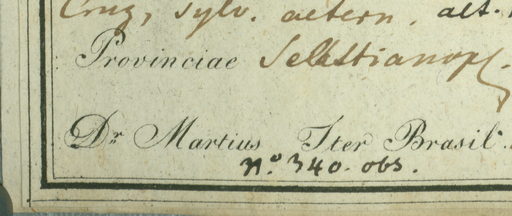 Cruz, sylv. aetern. alt.
Provinciae Sebastianop.
Dr Martius Iter Brasil.
n.° 340. obs.